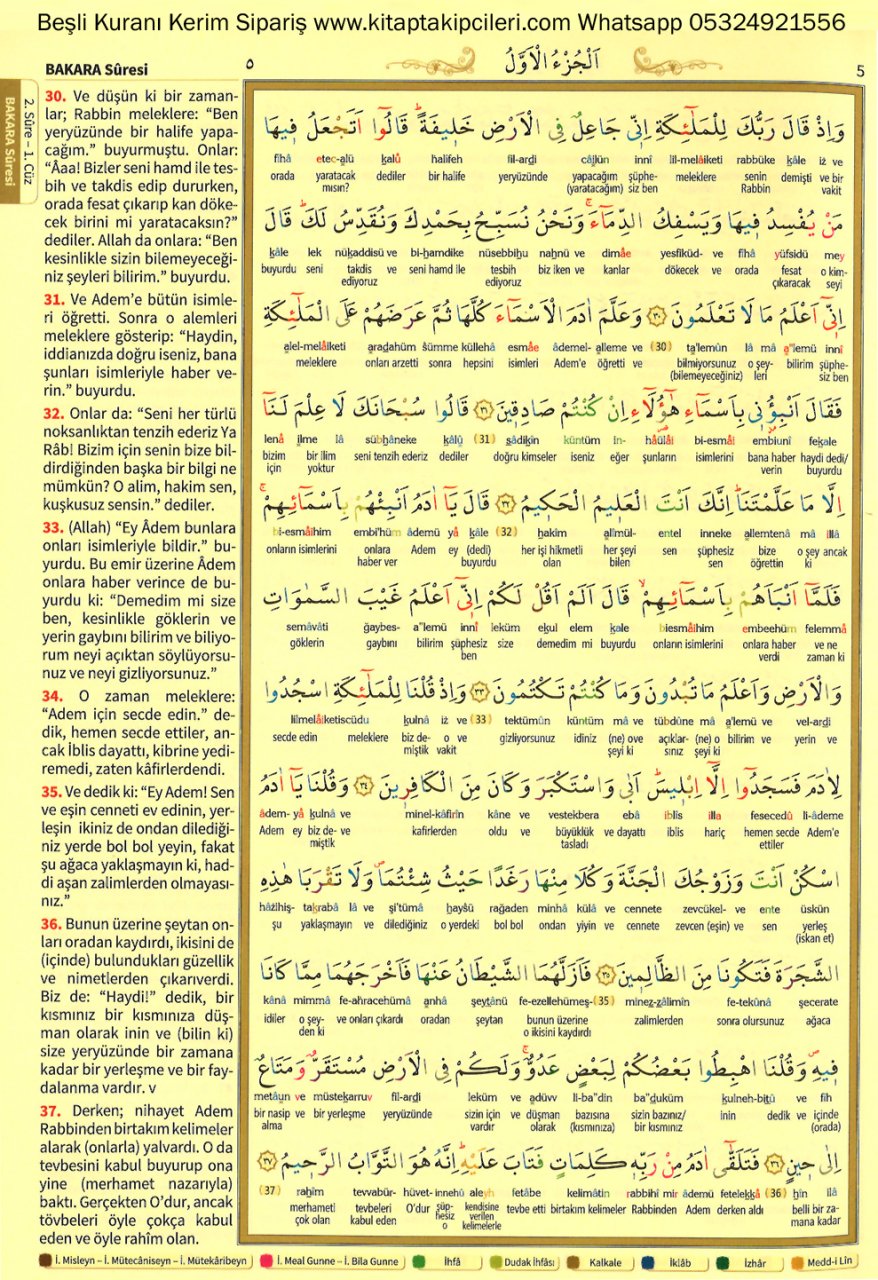 Beşli Kuranı Kerim Sipariş www.kitaptakipcileri.com Whatsapp 05324921556
BAKARA Sûresi
٥
اَلْجُزْءُ الْاَوَّلُ
5
2. Sûre – 1. Cüz
BAKARA Sûresi
30. Ve düşün ki bir zaman-
lar; Rabbin meleklere: “Ben
yeryüzünde bir halife yapa-
cağım.” buyurmuştu. Onlar:
“Âaa! Bizler seni hamd ile tes-
bih ve takdis edip dururken,
orada fesat çıkarıp kan döke-
cek birini mi yaratacaksın?”
dediler. Allah da onlara: “Ben
kesinlikle sizin bilemeyeceği-
niz şeyleri bilirim.” buyurdu.
31. Ve Adem’e bütün isimle-
ri öğretti. Sonra o alemleri
meleklere gösterip: “Haydin,
iddianızda doğru iseniz, bana
şunları isimleriyle haber ve-
rin.” buyurdu.
32. Onlar da: “Seni her türlü
noksanlıktan tenzih ederiz Ya
Râb! Bizim için senin bize bil-
dirdiğinden başka bir bilgi ne
mümkün? O alim, hakim sen,
kuşkusuz sensin.” dediler.
33. (Allah) “Ey Âdem bunlara
onları isimleriyle bildir.” bu-
yurdu. Bu emir üzerine Âdem
onlara haber verince de bu-
yurdu ki: “Demedim mi size
ben, kesinlikle göklerin ve
yerin gaybını bilirim ve biliyo-
rum neyi açıktan söylüyorsu-
nuz ve neyi gizliyorsunuz.”
34. O zaman meleklere:
“Adem için secde edin.” de-
dik, hemen secde ettiler, an-
cak İblis dayattı, kibrine yedi-
remedi, zaten kâfirlerdendi.
35. Ve dedik ki: “Ey Adem! Sen
ve eşin cenneti ev edinin, yer-
leşin ikiniz de ondan dilediği-
niz yerde bol bol yeyin, fakat
şu ağaca yaklaşmayın ki, had-
di aşan zalimlerden olmayası-
nız.”
36. Bunun üzerine şeytan on-
ları oradan kaydırdı, ikisini de
(içinde) bulundukları güzellik
ve nimetlerden çıkarıverdi.
Biz de: “Haydi!” dedik, bir
kısmınız bir kısmınıza düş-
man olarak inin ve (bilin ki)
size yeryüzünde bir zamana
kadar bir yerleşme ve bir fay-
dalanma vardır. v
37. Derken; nihayet Adem
Rabbinden birtakım kelimeler
alarak (onlarla) yalvardı. O da
tevbesini kabul buyurup ona
yine (merhamet nazarıyla)
baktı. Gerçekten O’dur, ancak
tövbeleri öyle çokça kabul
eden ve öyle rahîm olan.
وَاِذْ قَالَ رَبُّكَ لِلْمَلٰٓئِكَةِ اِنّ۪ي جَاعِلٌ فِي الْاَرْضِ خَل۪يفَةًۜ قَالُٓوا اَتَجْعَلُ ف۪يهَا
fîhâ etec-alü kalû halîfeh fil-ardi câılün innî lil-melâiketi rabbüke kâle iz ve
orada yaratacak dediler bir halife yeryüzünde yapacağım şüphe- meleklere senin demişti ve bir
mısın? (yaratacağım) siz ben Rabbin vakit
مَنْ يُفْسِدُ ف۪يهَا وَيَسْفِكُ الدِّمَٓاءَۚ وَنَحْنُ نُسَبِّحُ بِحَمْدِكَ وَنُقَدِّسُ لَكَۜ قَالَ
kâle lek nükaddisü ve bi-hamdike nüsebbihu nahnü ve dimâe yesfiküd- ve fîhâ yüfsidü mey
buyurdu seni takdis ve seni hamd ile tesbih biz iken ve kanlar dökecek ve orada fesat o kim-
ediyoruz ediyoruz çıkaracak seyi
اِنّ۪ٓي اَعْلَمُ مَا لَا تَعْلَمُونَ ﴿٣٠﴾ وَعَلَّمَ اٰدَمَ الْاَسْمَٓاءَ كُلَّهَا ثُمَّ عَرَضَهُمْ عَلَى الْمَلٰٓئِكَةِ
alel-melâiketi aradahüm sümme küllehâ esmâe âdemel- alleme ve (30) ta'lemûn lâ mâ a''lemü innî
meleklere onları arzetti sonra hepsini isimleri Adem'e öğretti ve bilmiyorsunuz o şey- bilirim şüphe-
(bilemeyeceğiniz) leri siz ben
فَقَالَ اَنْبِؤُ۫ن۪ي بِاَسْمَٓاءِ هٰٓؤُ۬لَٓاءِ اِنْ كُنْتُمْ صَادِق۪ينَ ﴿٣١﴾ قَالُوا سُبْحَانَكَ لَا عِلْمَ لَنَٓا
lenâ ilme lâ sübhâneke kâlû (31) sâdikîn küntüm in- hâülâi bi-esmâi embiunî fekale
bizim bir ilim seni tenzih ederiz dediler doğru kimseler iseniz eğer şunların isimlerini bana haber haydi dedi/
için yoktur verin buyurdu
اِلَّا مَا عَلَّمْتَنَاۜ اِنَّكَ اَنْتَ الْعَل۪يمُ الْحَك۪يمُ ﴿٣٢﴾ قَالَ يَٓا اٰدَمُ اَنْبِئْهُمْ بِاَسْمَٓائِهِمْۚ
bi-esmâihim embi'hüm âdemü yâ kâle (32) hakîm alîmül- entel inneke allemtenâ mâ illâ
onların isimlerini onlara Adem ey (dedi) her işi hikmetli her şeyi sen şüphesiz bize o şey ancak
haber ver buyurdu olan bilen sen öğrettin ki
فَلَمَّٓا اَنْبَاَهُمْ بِاَسْمَٓائِهِمْۙ قَالَ اَلَمْ اَقُلْ لَكُمْ اِنّ۪ٓي اَعْلَمُ غَيْبَ السَّمٰوَاتِ
semâvâti ğaybes- a''lemü innî leküm ekul elem kale biesmâihim embeehüm felemmâ
göklerin gaybını bilirim şüphesiz size demedim mi buyurdu onların isimlerini onlara haber ve ne
ben verdi zaman ki
وَالْاَرْضِ وَاَعْلَمُ مَا تُبْدُونَ وَمَا كُنْتُمْ تَكْتُمُونَ ﴿٣٣﴾ وَاِذْ قُلْنَا لِلْمَلٰٓئِكَةِ اسْجُدُوا
lilmelâiketiscüdu kulnâ iz ve (33) tektümûn küntüm mâ ve tübdûne mâ a'lemü ve vel-ardi
secde edin meleklere biz de- o ve gizliyorsunuz idiniz (ne) ove açıklar- (ne) o bilirim ve yerin ve
miştik vakit şeyi ki sınız şeyi ki
لِاٰدَمَ فَسَجَدُٓوا اِلَّٓا اِبْل۪يسَۜ اَبٰى وَاسْتَكْبَرَ وَكَانَ مِنَ الْكَافِر۪ينَ ﴿٣٤﴾ وَقُلْنَا يَٓا اٰدَمُ
âdem- yâ kulnâ ve minel-kâfirîn kâne ve vestekbera ebâ iblis illa fesecedû li-âdeme
Adem ey biz de- ve kafirlerden oldu ve büyüklük ve dayattı iblis hariç hemen secde Adem'e
miştik tasladı ettiler
اسْكُنْ اَنْتَ وَزَوْجُكَ الْجَنَّةَ وَكُلَا مِنْهَا رَغَدًا حَيْثُ شِئْتُمَاۖ وَلَا تَقْرَبَا هٰذِهِ
hâzihiş- takrabâ lâ ve şi'tümâ haysü rağaden minhâ külâ ve cennete zevcükel- ve ente üskün
şu yaklaşmayın ve dilediğiniz o yerdeki bol bol ondan yiyin ve cennete zevcen (eşin) ve sen yerleş
(iskan et)
الشَّجَرَةَ فَتَكُونَا مِنَ الظَّالِم۪ينَ ﴿٣٥﴾ فَاَزَلَّهُمَا الشَّيْطَانُ عَنْهَا فَاَخْرَجَهُمَا مِمَّا كَانَا
kânâ mimmâ fe-ahracehümâ anhâ şeytânü fe-ezellehümeş- (35) minez-zâlimîn fe-tekûnâ şecerate
idiler o şey- ve onları çıkardı oradan şeytan bunun üzerine zalimlerden sonra olursunuz ağaca
den ki o ikisini kaydırdı
ف۪يهِۖ وَقُلْنَا اهْبِطُوا بَعْضُكُمْ لِبَعْضٍ عَدُوٌّۚ وَلَكُمْ فِي الْاَرْضِ مُسْتَقَرٌّ وَمَتَاعٌ
metâun ve müstekarruv fil-ardi leküm ve adüvv li-ba''din ba''duküm kulneh-bitû ve fîh
bir nasip ve bir yerleşme yeryüzünde sizin için ve düşman bazısına sizin bazınız/ inin dedik ve içinde
alma vardır olarak (kısmınıza) bir kısmınız (orada)
اِلٰى ح۪ينٍ ﴿٣٦﴾ فَتَلَقّٰٓى اٰدَمُ مِنْ رَبِّه۪ كَلِمَاتٍ فَتَابَ عَلَيْهِۜ اِنَّهُ هُوَ التَّوَّابُ الرَّح۪يمُ ﴿٣٧﴾
(37) rahîm tevvabür- hüvet- innehü aleyh fetâbe kelimâtin rabbihî mir âdemü fetelekkâ (36) hîn ilâ
merhameti tevbeleri O'dur şüp- kendisine tevbe etti birtakım kelimeler Rabbinden Adem derken aldı belli bir za-
çok olan kabul eden hesiz verilen mana kadar
o kelimelerle
İ. Misleyn – İ. Mütecâniseyn – İ. Mütekâribeyn İ. Meal Gunne – İ. Bila Gunne İhfâ Dudak İhfâsı Kalkale İklâb İzhâr Medd-i Lîn